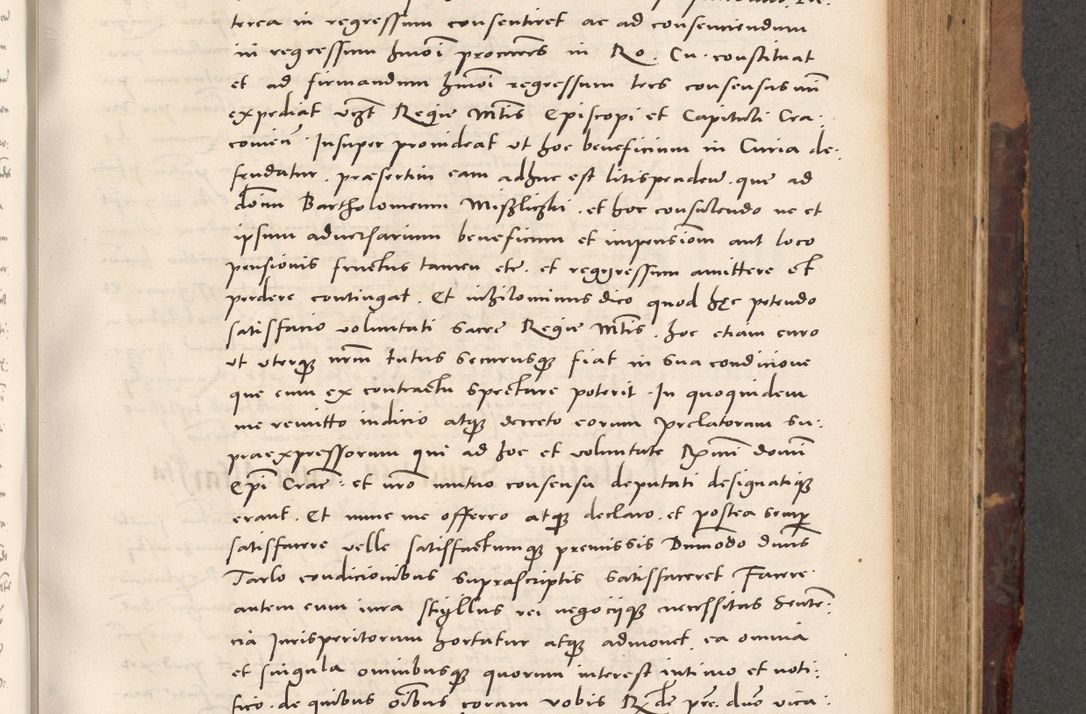 terea in regressum consentiret ac ad consentiendum
in regressum hmoi procures in Ro. Cu. constituat
et ad firmandum hmoi regressum tres consensus mi
expediat vzt Regie Mtis Episcopi et Capituli Cra:
covien̄. Insuper provideat ut hoc beneficium in Curia de:
fendatur. præsertim cum adhuc est litispenden. que ad
dōnu Bartholomeum Miszliczki. et hoc consulendo ne et
ipsum adversarium beneficium et impensiom aut loco
pensionis fructus tamen etc. et reggressum amittere et
perdere contingat. Et nihilominus dico quod hęc petendo
satisfacio voluntati Sacre Regie Mtis. hoc etiam curo
ut uterque nrm tutus securusque fiat in sua condicione
que cum ex contractu spectare poterit. In quoquidem
me remitto iudicio atque decreto eorum prelatorum su:
praexpressorum qui ad hoc et voluntate Rmi domi
Epi Crac. et nro mutuo consensu deputati designatique
erant. Et nunc me offerro atque declaro. et postea semper
satisfacere velle satisfactumque premissis Dummodo dmns
Tarlo condicionibus suprascriptis satisfaceret Facere
autem cum iura styllus rei negociique necessitas Senten:
cia Jurisperitorum hortatur atque admonet, ea omnia
et singula omnibusque quorum interest intimo et noti:
fico. de quibus oibus coram vobis Rde pre. dne vica: